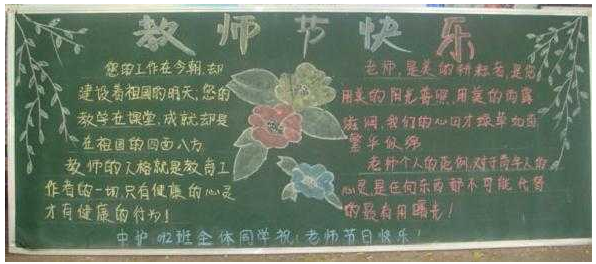 教师节快乐
您的工作在今朝,却
建设着祖国的明天,您的
教学在课堂,成就却是
在祖国的四面八方
教师的人格就是教育工
作者的一切,只有健康的心灵
才有健康的行为!
老师,是美的耕耘者,是您
用美的阳光普照,用美的雨露
滋润,我们的心田才绿草如茵
繁华似锦
老师个人的范例,对于青年人的
心灵,是任何东西都不可能代替
的最有用曙光!
中护 班全体同学祝:老师节日快乐!